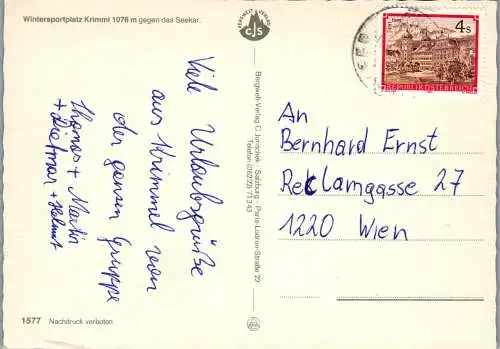 Wintersportplatz Krimml 1076 m gegen das Seekar.
BERGWELT VERLAG
CJS
4s
REPUBLIK ÖSTERREICH
Viele Urlaubsgrüße
aus Krimml von
der ganzen Gruppe
Thomas + Martin
+ Dietmar + Helmut
Bergwelt-Verlag C. Jurischek · Salzburg · Paris-Lodron-Straße 22
Telefon (06222) 71343
An
Bernhard Ernst
Reklamgasse 27
1220 Wien
1577 Nachdruck verboten